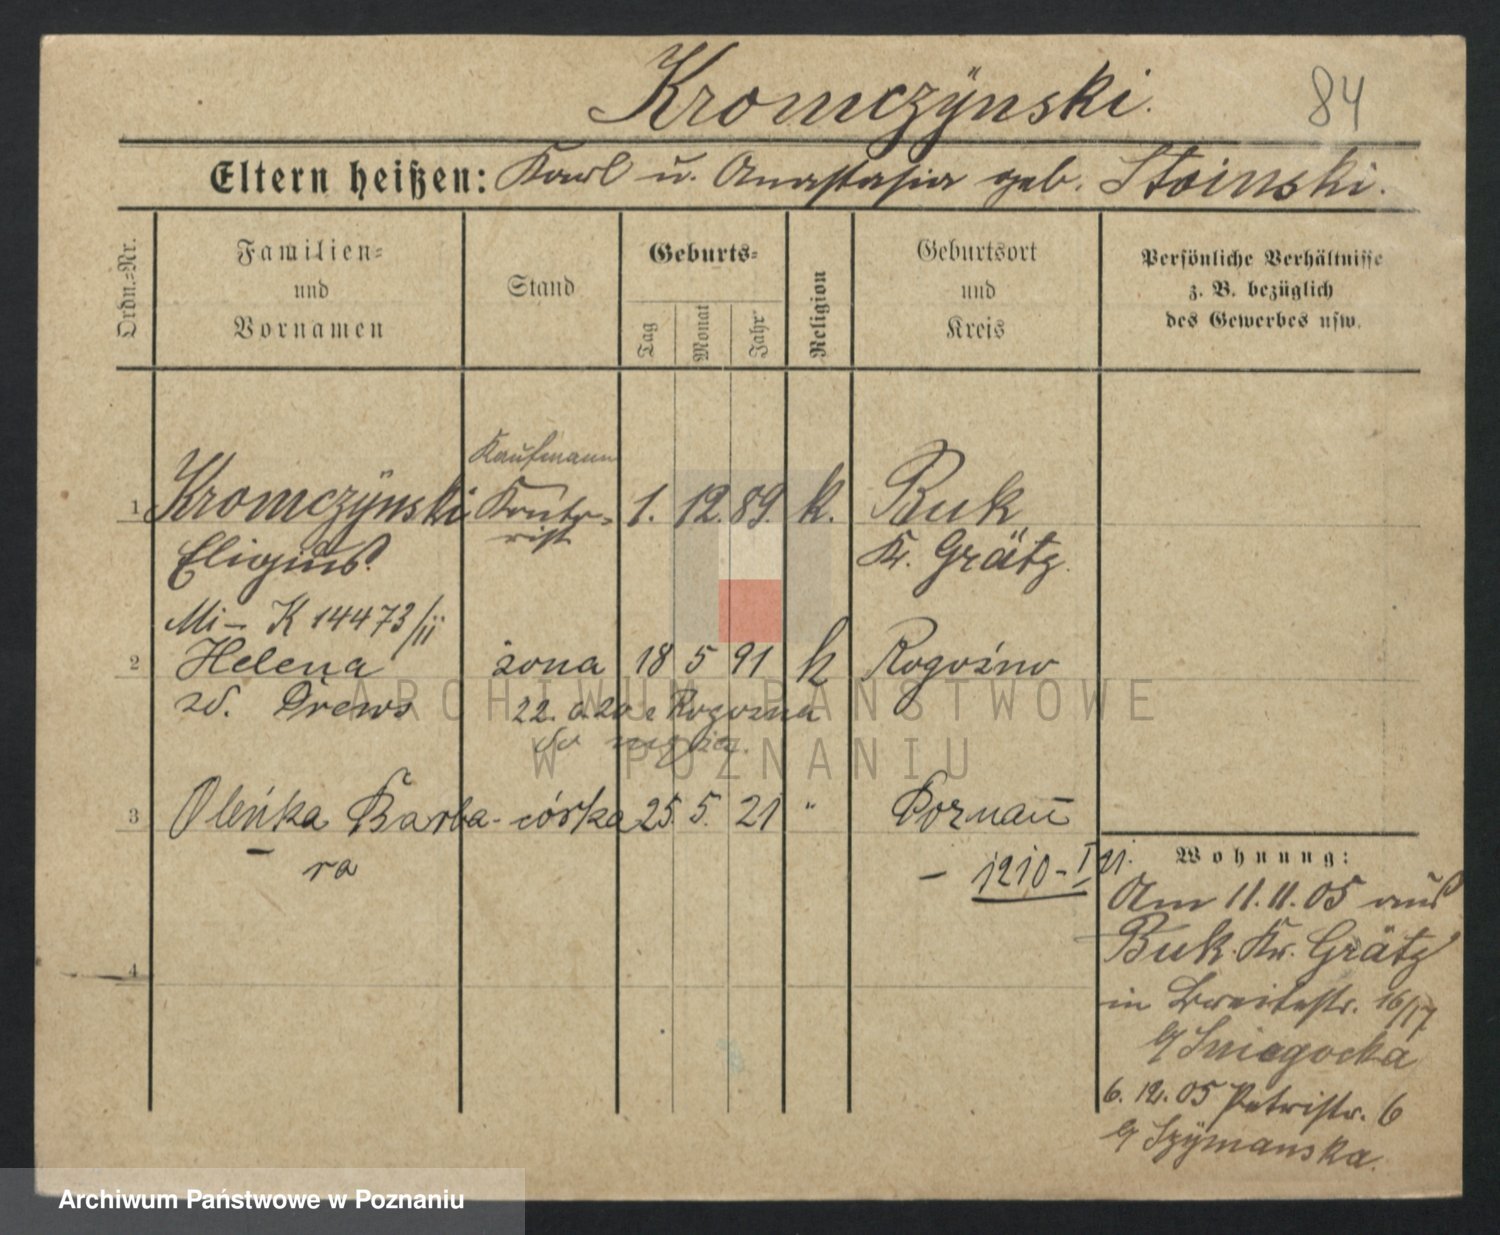 Kromczÿnski.
84
Eltern heißen: Karl u. Anastasia geb. Stoinski.
Ordn.=Nr.
Familien=
und
Vornamen
Stand
Geburts=
Tag
Monat
Jahr
Religion
Geburtsort
und
Kreis
Persönliche Verhältnisse
z. B. bezüglich
des Gewerbes usw.
Kaufmann
1 Kromczÿnski Konto= 1. 12. 89. k. Buk
rist
Eligius. Kr. Grätz.
Mi– K 14473/ii
2 Helena żona 18 5 91 k Rogoźno
zd. Drews 22. 6. 20 z Rogoźna
do męża.
3 Oleńka Barba- córka 25. 5. 21 " Poznań
ra
– 1210 – I 21.
4
Wohnung:
Am 11.11.05 aus
Buk Kr. Grätz
in Breitestr. 16/17
b/ Sniegocka
6. 12. 05 Petristr. 6
b/ Szÿmanska.
ARCHIWUM PAŃSTWOWE
W POZNANIU
Archiwum Państwowe w Poznaniu